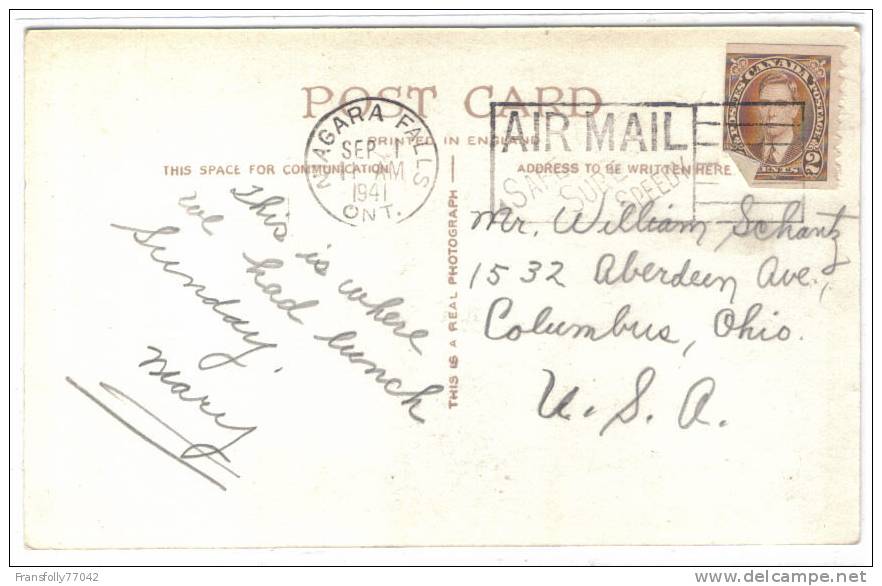 POST CARD
PRINTED IN ENGLAND
THIS SPACE FOR COMMUNICATION
ADDRESS TO BE WRITTEN HERE
NIAGARA FALLS
SEP 1
11 AM
1941
ONT.
AIR MAIL
SAFE
SURE
SPEEDY
POSTES CANADA POSTAGE
2
CENTS
This is where
we had lunch
Sunday.
Mary
THIS IS A REAL PHOTOGRAPH
Mr. William Schantz
1532 Aberdeen Ave.,
Columbus, Ohio.
U. S. A.
Fransfolly77042
http://www.delcampe.net